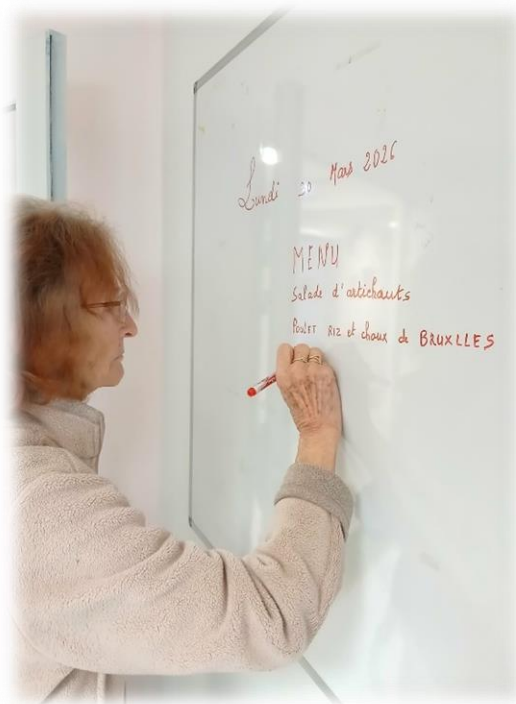 Lundi Mars 2026
MENU
Salade d'artichauts
Poulet Riz et choux de BRUXLLES